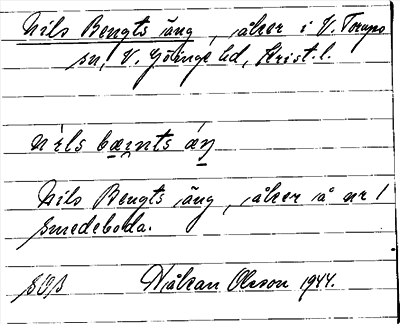 Nils Bengts äng, åker i V. Torups
sn, V. Göinge hd, Krist. l.
nils bæŋts áŋ
Nils Bengts äng, åker å nr 1
Smedeboda.
Håkan Olsson 1944.